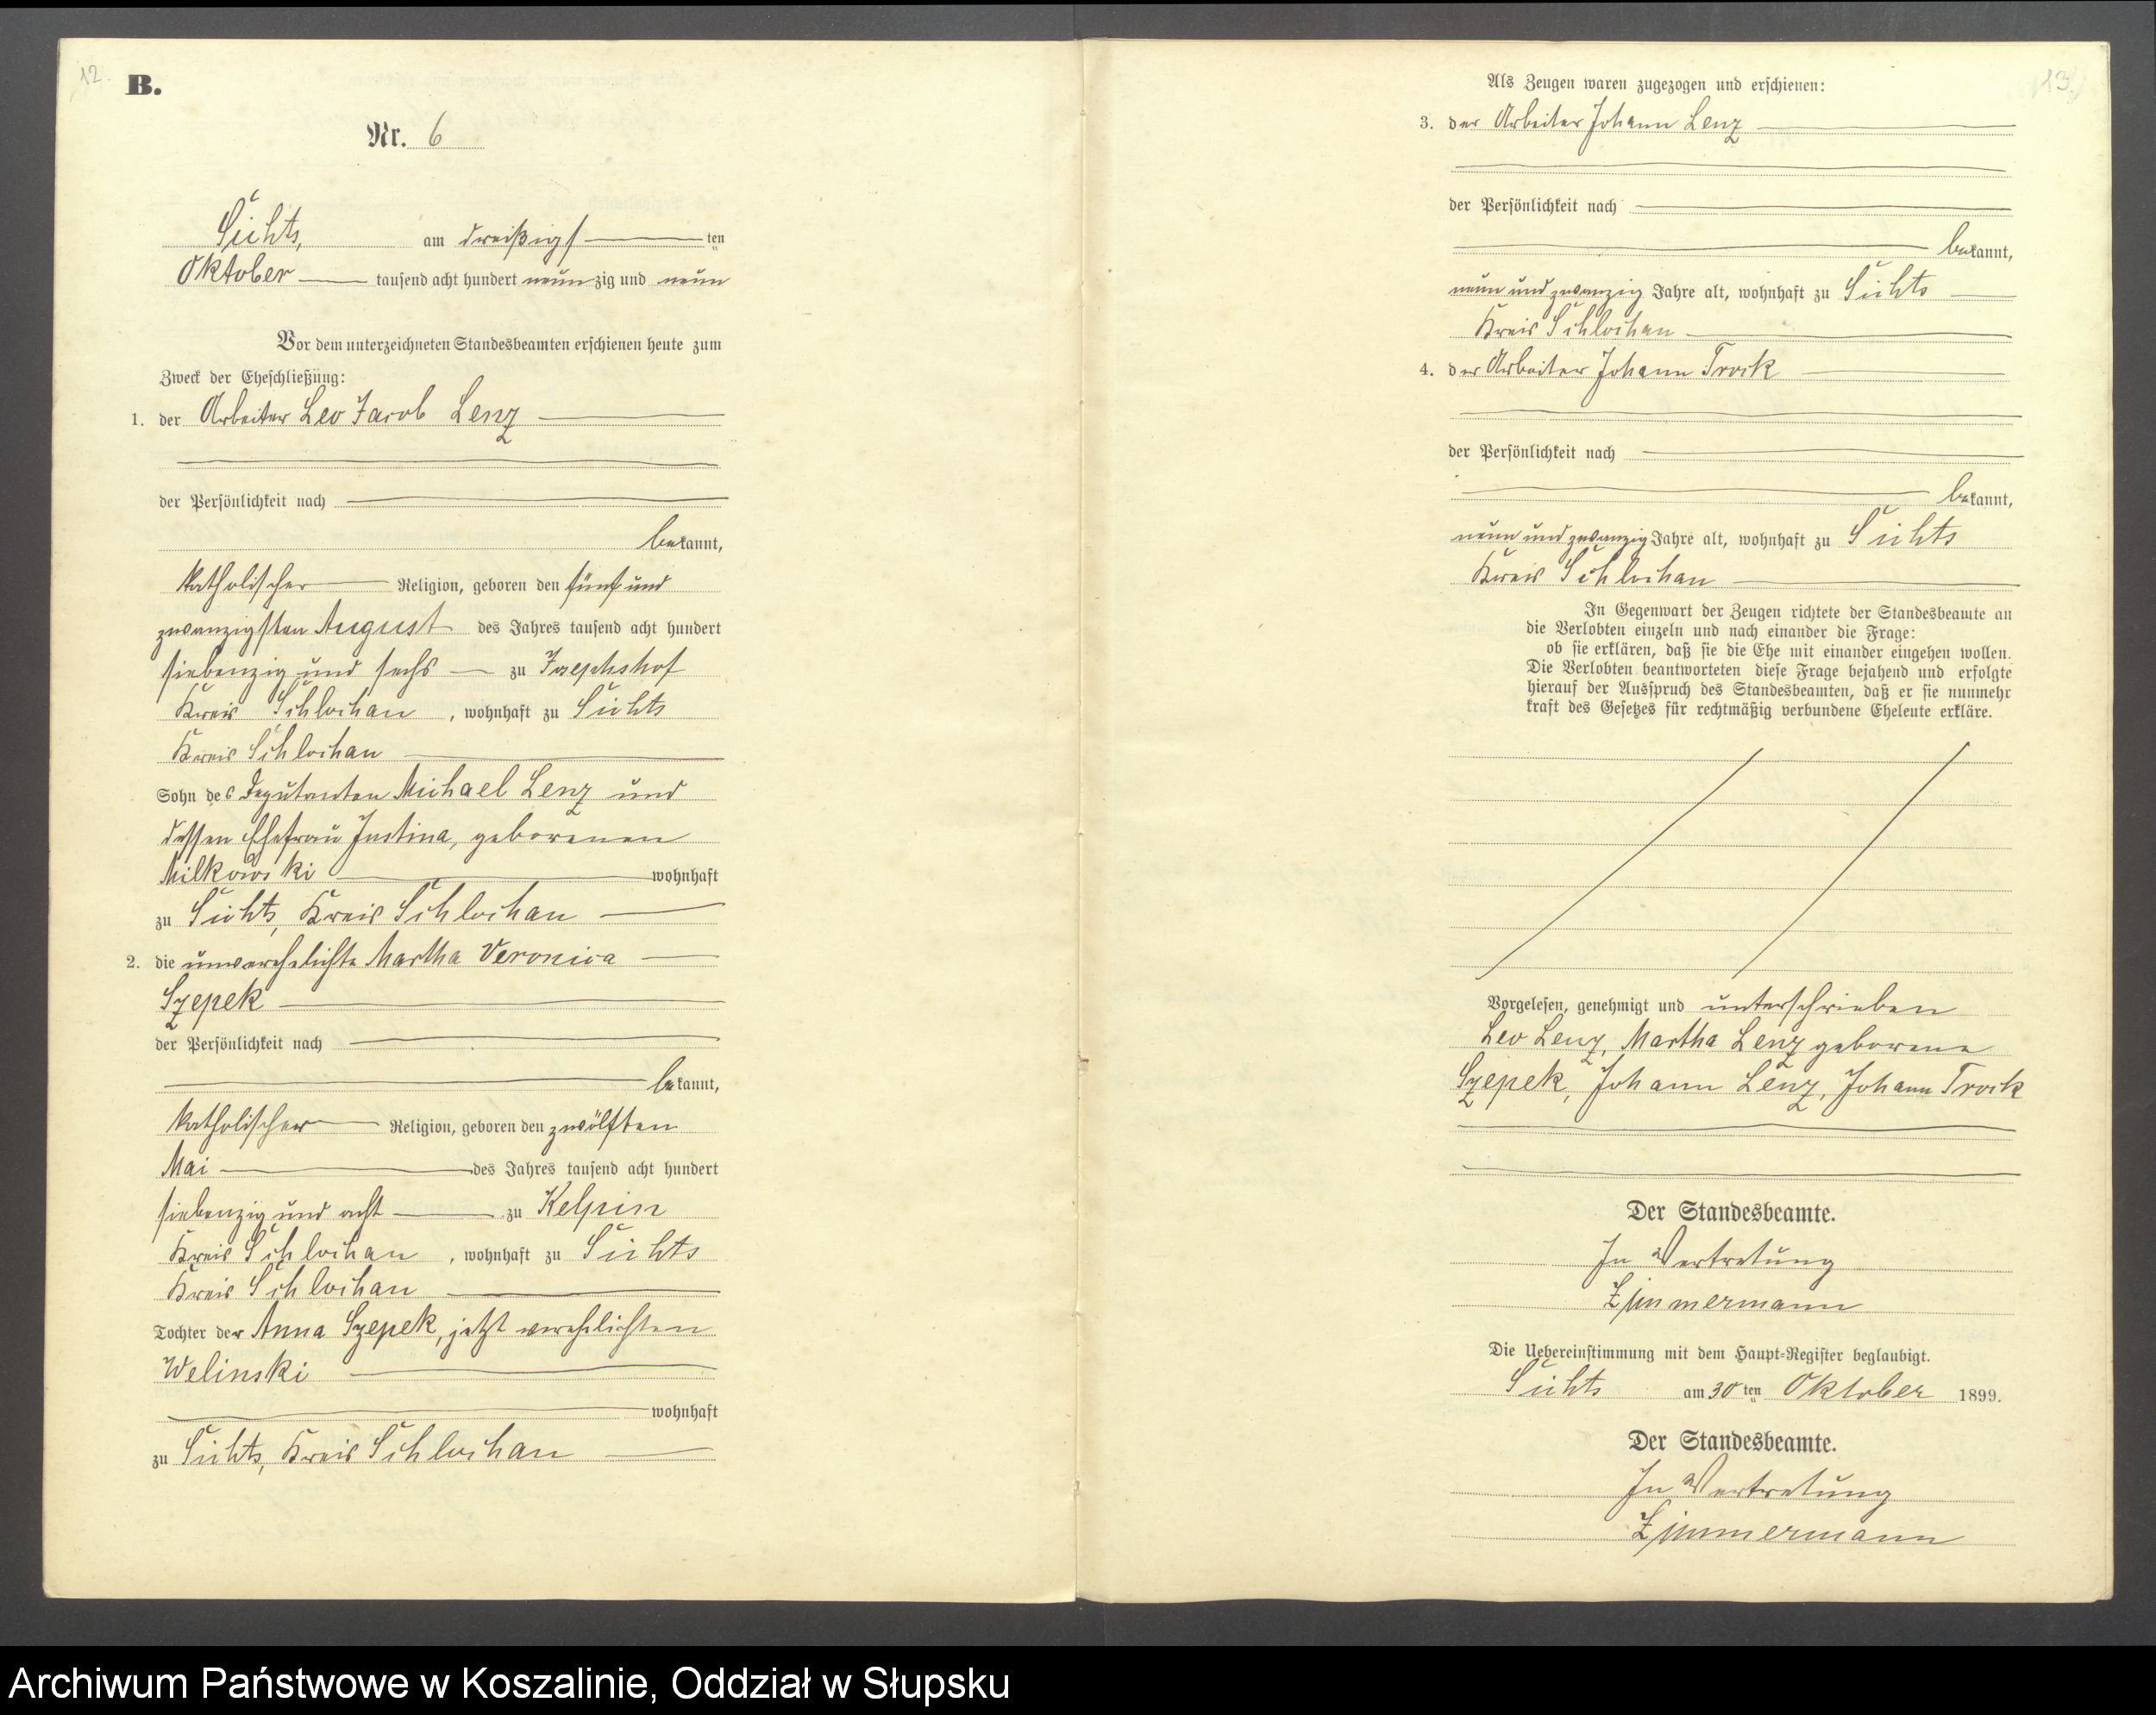 12.
B.
Nr. 6
Sichts, am dreißigsten
Oktober tausend acht hundert neunzig und neun
Vor dem unterzeichneten Standesbeamten erschienen heute zum
Zweck der Eheschließung:
1. der Arbeiter Leo Jacob Lenz
der Persönlichkeit nach
bekannt,
katholischer Religion, geboren den fünf und
zwanzigsten August des Jahres tausend acht hundert
siebenzig und sechs zu Josephshof
Kreis Schlochau, wohnhaft zu Sichts
Kreis Schlochau
Sohn des Deputanten Michael Lenz und
dessen Ehefrau Justina, geborenen
Milkowski wohnhaft
zu Sichts, Kreis Schlochau
2. die unverehelichte Martha Veronica
Szepek
der Persönlichkeit nach
bekannt,
katholischer Religion, geboren den zwölften
Mai des Jahres tausend acht hundert
siebenzig und acht zu Kelpin
Kreis Schlochau, wohnhaft zu Sichts
Kreis Schlochau
Tochter der Anna Szepek, jetzt verehelichten
Welinski
wohnhaft
zu Sichts, Kreis Schlochau
13.
Als Zeugen waren zugezogen und erschienen:
3. der Arbeiter Johann Lenz
der Persönlichkeit nach
bekannt,
neun und zwanzig Jahre alt, wohnhaft zu Sichts
Kreis Schlochau
4. der Arbeiter Johann Trock
der Persönlichkeit nach
bekannt,
neun und zwanzig Jahre alt, wohnhaft zu Sichts
Kreis Schlochau
In Gegenwart der Zeugen richtete der Standesbeamte an
die Verlobten einzeln und nach einander die Frage:
ob sie erklären, daß sie die Ehe mit einander eingehen wollen.
Die Verlobten beantworteten diese Frage bejahend und erfolgte
hierauf der Ausspruch des Standesbeamten, daß er sie nunmehr
kraft des Gesetzes für rechtmäßig verbundene Eheleute erkläre.
Vorgelesen, genehmigt und unterschrieben
Leo Lenz, Martha Lenz geborene
Szepek, Johann Lenz, Johann Trock
Der Standesbeamte.
In Vertretung
Zimmermann
Die Uebereinstimmung mit dem Haupt-Register beglaubigt.
Sichts am 30ten Oktober 1899.
Der Standesbeamte.
In Vertretung
Zimmermann
Archiwum Państwowe w Koszalinie, Oddział w Słupsku